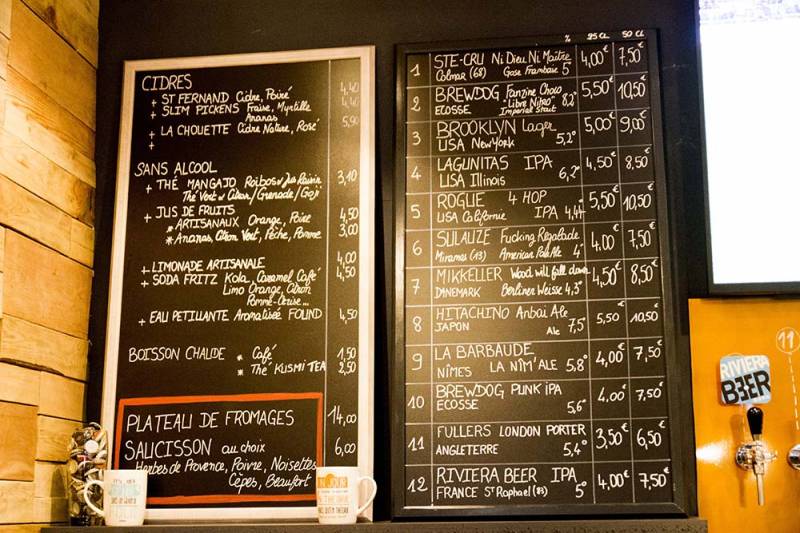 CIDRES
+ ST FERNAND Cidre, Poiré 4,40
+ SLIM PICKENS Fraise, Myrtille 4,40
Ananas
+ LA CHOUETTE Cidre Nature, Rosé 5,90
+
+
SANS ALCOOL
+ THÉ MANGAJO Roïbos
Thé Vert Citron/Grenade/Goji 3,10
+ JUS DE FRUITS
* ARTISANAUX Orange, Poire 4,50
* Ananas, Citron Vert, Pêche, Pomme 3,00
+ LIMONADE ARTISANALE 4,00
+ SODA FRITZ Kola, Caramel Café 4,50
Limo Orange, Citron
Pomme-Cerise...
+ EAU PETILLANTE Aromatisée FOUND 4,50
BOISSON CHAUDE * Café 1,50
* Thé KUSMI TEA 2,50
PLATEAU DE FROMAGES 14,00
SAUCISSON au choix 6,00
Herbes de Provence, Poivre, Noisettes
Cèpes, Beaufort
% 25 CL 50 CL
1 STE-CRU Ni Dieu Ni Maître 4,00€ 7,50€
Colmar (68) Gose Framboise 5°
2 BREWDOG Fanzine Choco 5,50€ 10,50€
"Libre Nitro" 8,2°
ECOSSE Imperial Stout
3 BROOKLYN Lager 5,00€ 9,00€
USA New York 5,2°
4 LAGUNITAS IPA 4,50€ 8,50€
USA Illinois 6,2°
5 ROGUE 4 HOP 5,50€ 10,50€
USA Californie IPA 4,4°
6 SULAUZE Fucking Regalade 4,00€ 7,50€
Miramas (13) American Pale Ale 4°
7 MIKKELLER Wood will fall down 4,50€ 8,50€
DANEMARK Berliner Weisse 4,3°
8 HITACHINO Anbai Ale 5,50€ 10,50€
JAPON Ale 7,5°
9 LA BARBAUDE 4,00€ 7,50€
NÎMES LA NÎM'ALE 5,8°
10 BREWDOG PUNK IPA 4,00€ 7,50€
ECOSSE 5,6°
11 FULLERS LONDON PORTER 3,50€ 6,50€
ANGLETERRE 5,4°
12 RIVIERA BEER IPA 4,00€ 7,50€
FRANCE St Raphael (83) 5°
RIVIERA
BEER
11